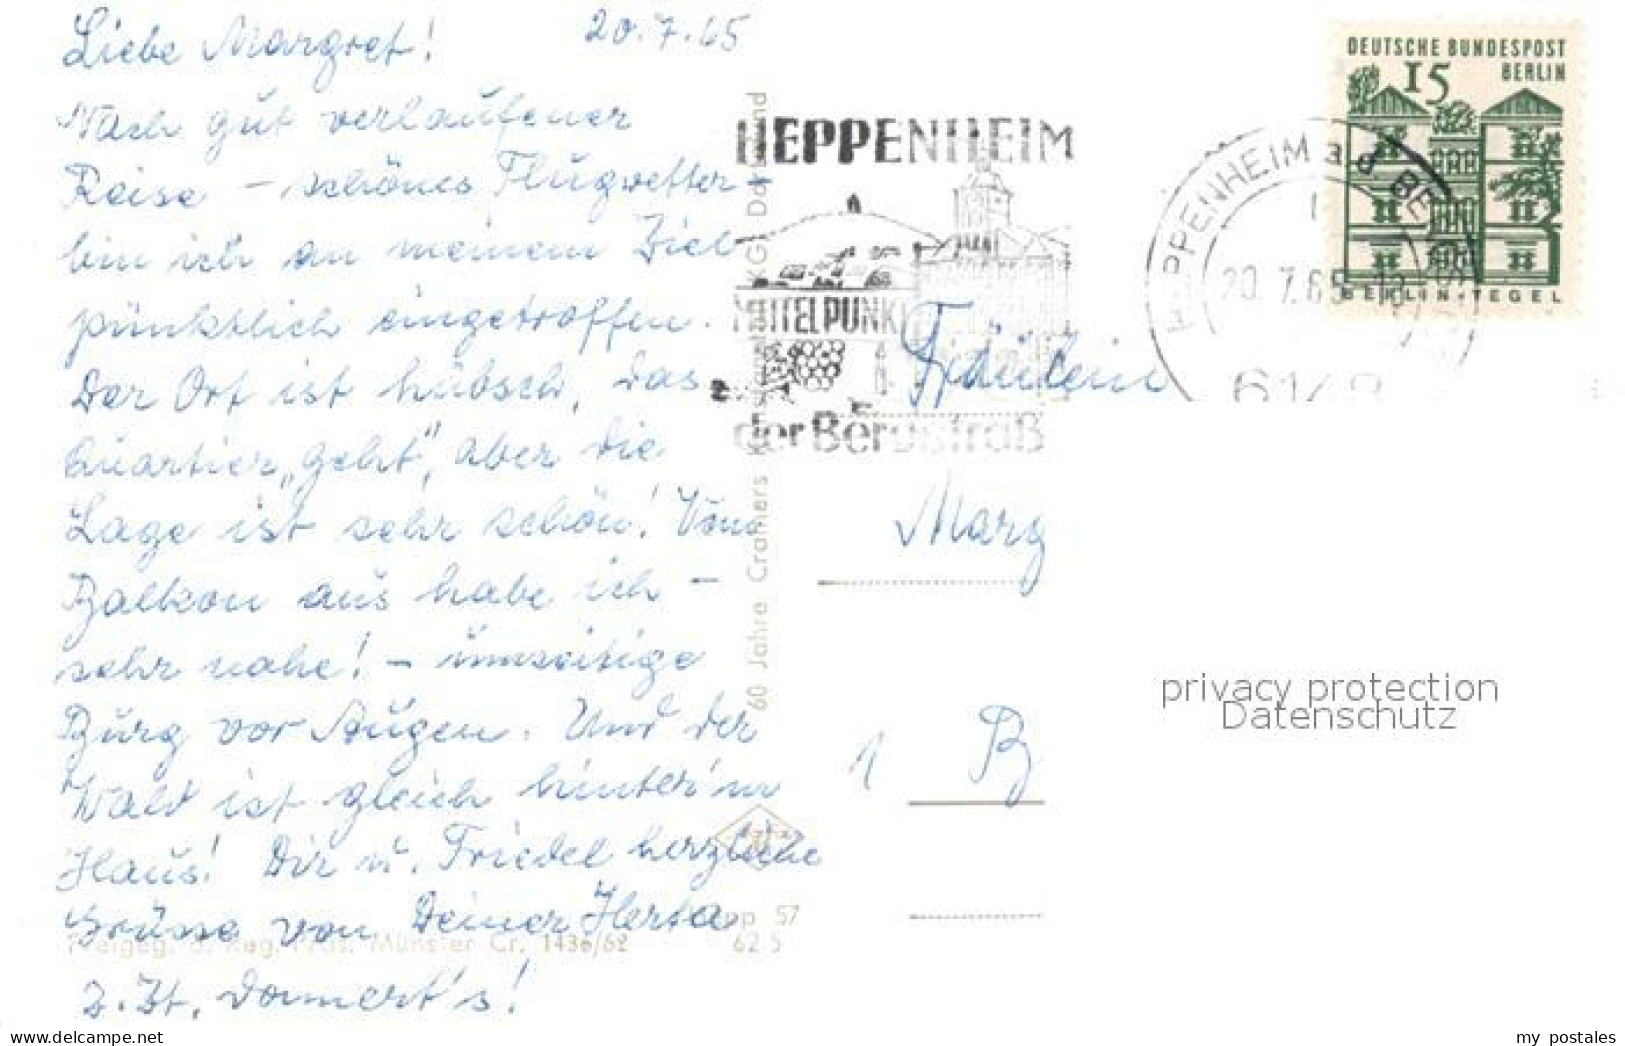 20.7.65
Liebe Margret!
Nach gut verlaufener
Reise – schönes Flugwetter –
bin ich an meinem Ziel
pünktlich eingetroffen.
Der Ort ist hübsch, das
Quartier „geht", aber die
Lage ist sehr schön! Vom
Balkon aus habe ich –
sehr nahe! – umseitige
Burg vor Augen. Und der
Wald ist gleich hinter'm
Haus! Dir u. Friedel herzliche
Grüsse von Deiner Herta
z. Zt. donnert's!
60 Jahre Cramers Kunstanstalt KG, Dortmund
Freigeg. d. Reg. Präs. Münster Cr. 1436/62
pp 57
62 5
HEPPENHEIM
MITTELPUNKT
der Bergstraß
HEPPENHEIM a d BERG
20.7.65-18
6148
DEUTSCHE BUNDESPOST
BERLIN
15
BERLIN-TEGEL
Fräulein
Marg
1 B
privacy protection
Datenschutz
delcampe.net
my postales